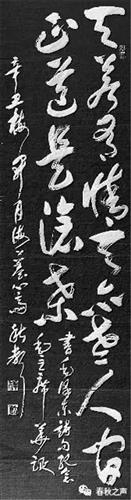 天若有情天亦老人間
正道是滄桑
書毛澤東詩句紀念
毛主席華誕
辛丑梅月
春秋之声